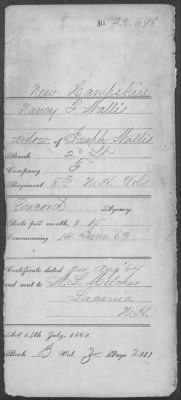 No. 28,698
New Hampshire
Nancy F Wallis
widow of Joseph Wallis
Rank 2d Lt
Company F
Regiment 8th N.H. Vols
Concord Agency.
Rate per month, $ 15
Commencing 14 June '63
Certificate dated Aug '64
and sent to Melcher
Laconia
N.H.
Act 14th July, 1862.
Book B Vol. 2 Page